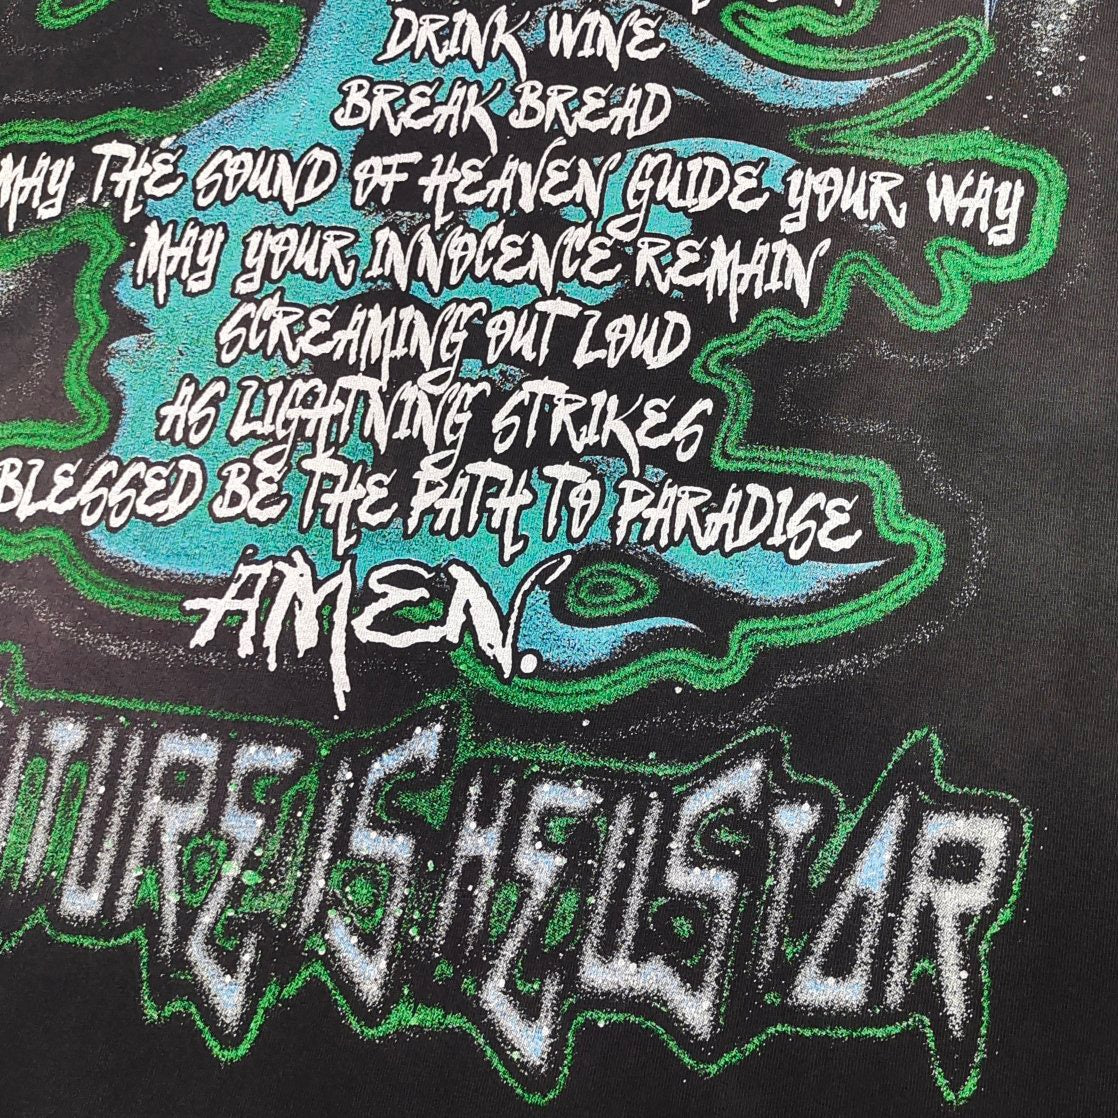 DRINK WINE
BREAK BREAD
MAY THE SOUND OF HEAVEN GUIDE YOUR WAY
MAY YOUR INNOCENCE REMAIN
SCREAMING OUT LOUD
AS LIGHTNING STRIKES
BLESSED BE THE PATH TO PARADISE
AMEN.
TURE IS HELLSTAR